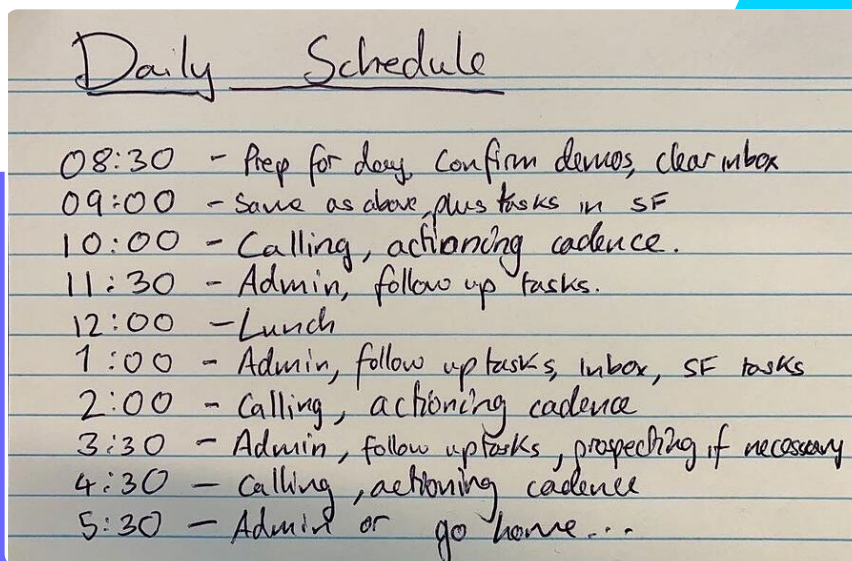 Daily Schedule
08:30 - Prep for day, Confirm demos, clear inbox
09:00 - Same as above, plus tasks in SF
10:00 - Calling, actioning cadence.
11:30 - Admin, follow up tasks.
12:00 - Lunch
1:00 - Admin, follow up tasks, inbox, SF tasks
2:00 - Calling, actioning cadence
3:30 - Admin, follow up tasks, prospecting if necessary
4:30 - Calling, actioning cadence
5:30 - Admin or go home...